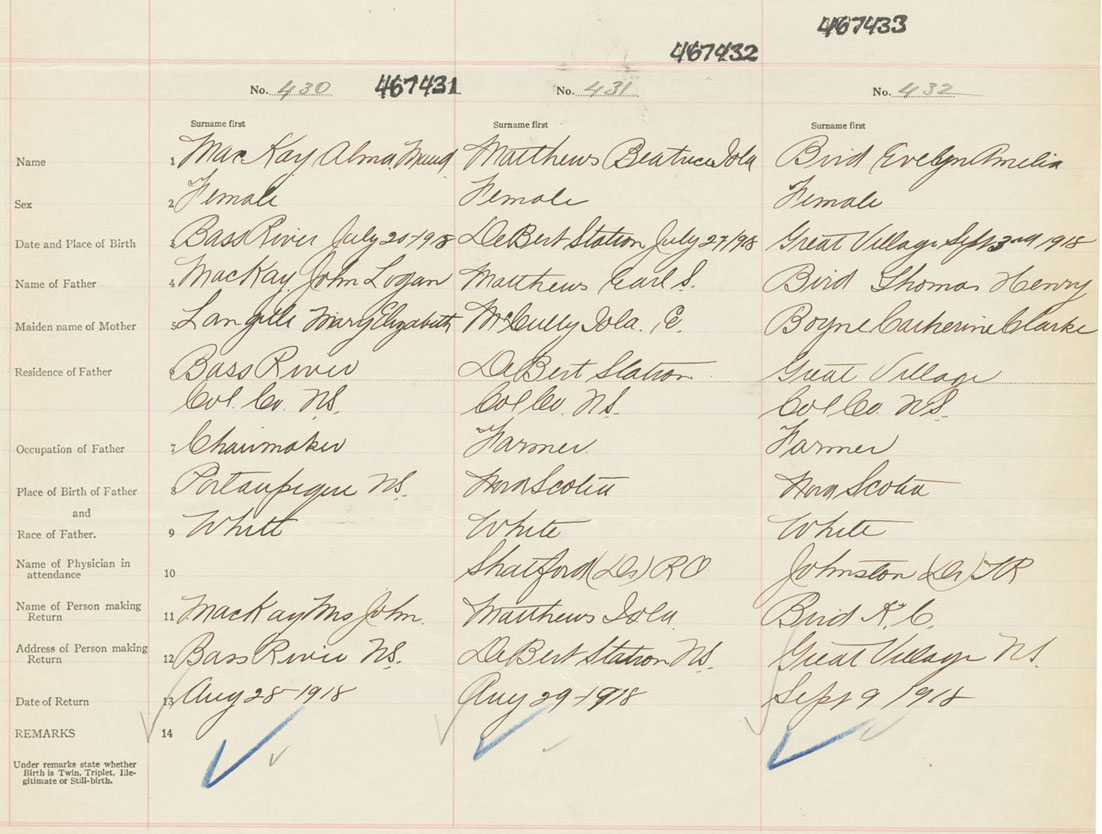 467433
467432
467431
No. 430
No. 431
No. 432
Surname first
Surname first
Surname first
Name 1 MacKay Alma Maud Matthews Beatrice Iola Bird Evelyn Amelia
Sex 2 Female Female Female
Date and Place of Birth 3 Bass River July 20-1918 DeBert Station July 27/1918 Great Village Sept 3nd 1918
Name of Father 4 MacKay John Logan Matthews Earl S. Bird Thomas Henry
Maiden name of Mother 5 Langille Mary Elizabeth McCully Iola. E. Boyne Catherine Clarke
Residence of Father 6 Bass River DeBert Station Great Village
Col. Co. NS. Col Co. NS. Col Co NS.
Occupation of Father 7 Chairmaker Farmer. Farmer
Place of Birth of Father 8 Portaupique NS. Nova Scotia Nova Scotia
and
Race of Father. 9 White White White
Name of Physician in
attendance 10 Shatford (Dr) RO Johnston (Dr) TR
Name of Person making
Return 11 MacKay Mrs John. Matthews Iola. Bird C.
Address of Person making
Return 12 Bass River NS. DeBert Station NS. Great Village NS.
Date of Return 13 Aug 28-1918 Aug 29-1918 Sept 9 1918
REMARKS 14
Under remarks state whether
Birth is Twin, Triplet, Ille-
gitimate or Still-birth.